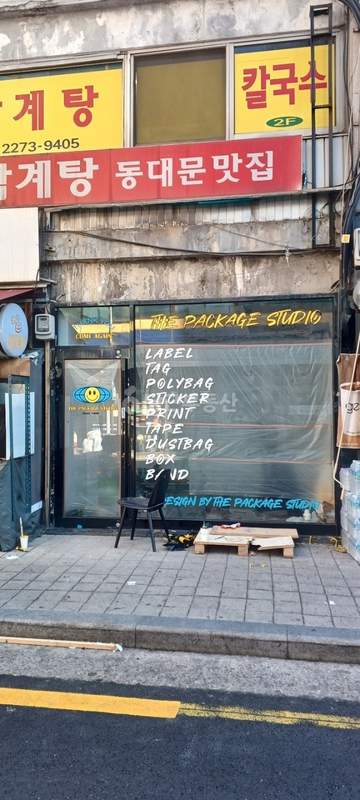 계탕
칼국수
2273-9405
2F
계탕 동대문맛집
THE PACKAGE STUDIO
COME AGAIN
LABEL
TAG
POLYBAG
STICKER
PRINT
TAPE
DUSTBAG
BOX
THE PACKAGE STUDIO
DESIGN BY THE PACKAGE STUDIO